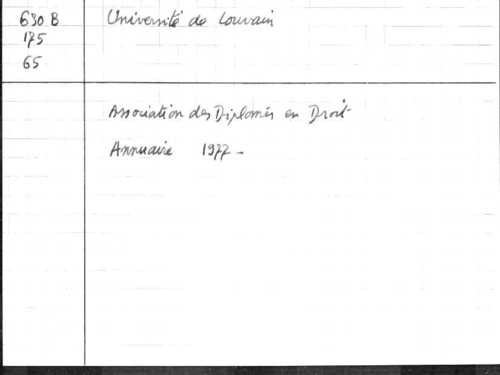 630 B
Université de Louvain
175
65
Association des Diplomés en Droit
Annuaire 1977 -